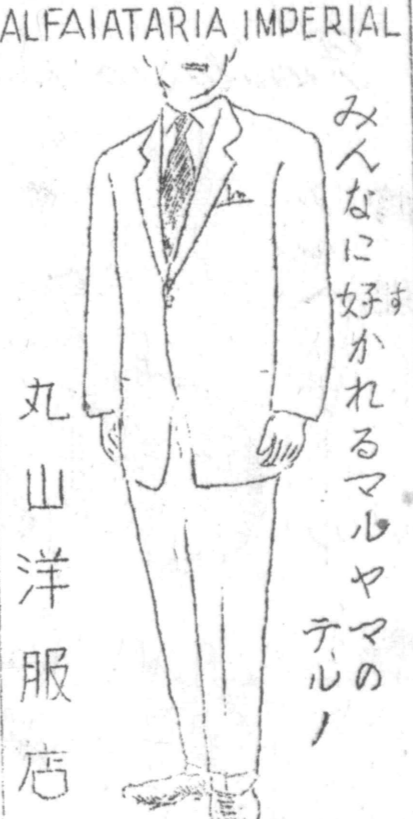 ALFAIATARIA IMPERIAL
みんなに好かれるマルヤマの
す
テルノ
丸山洋服店